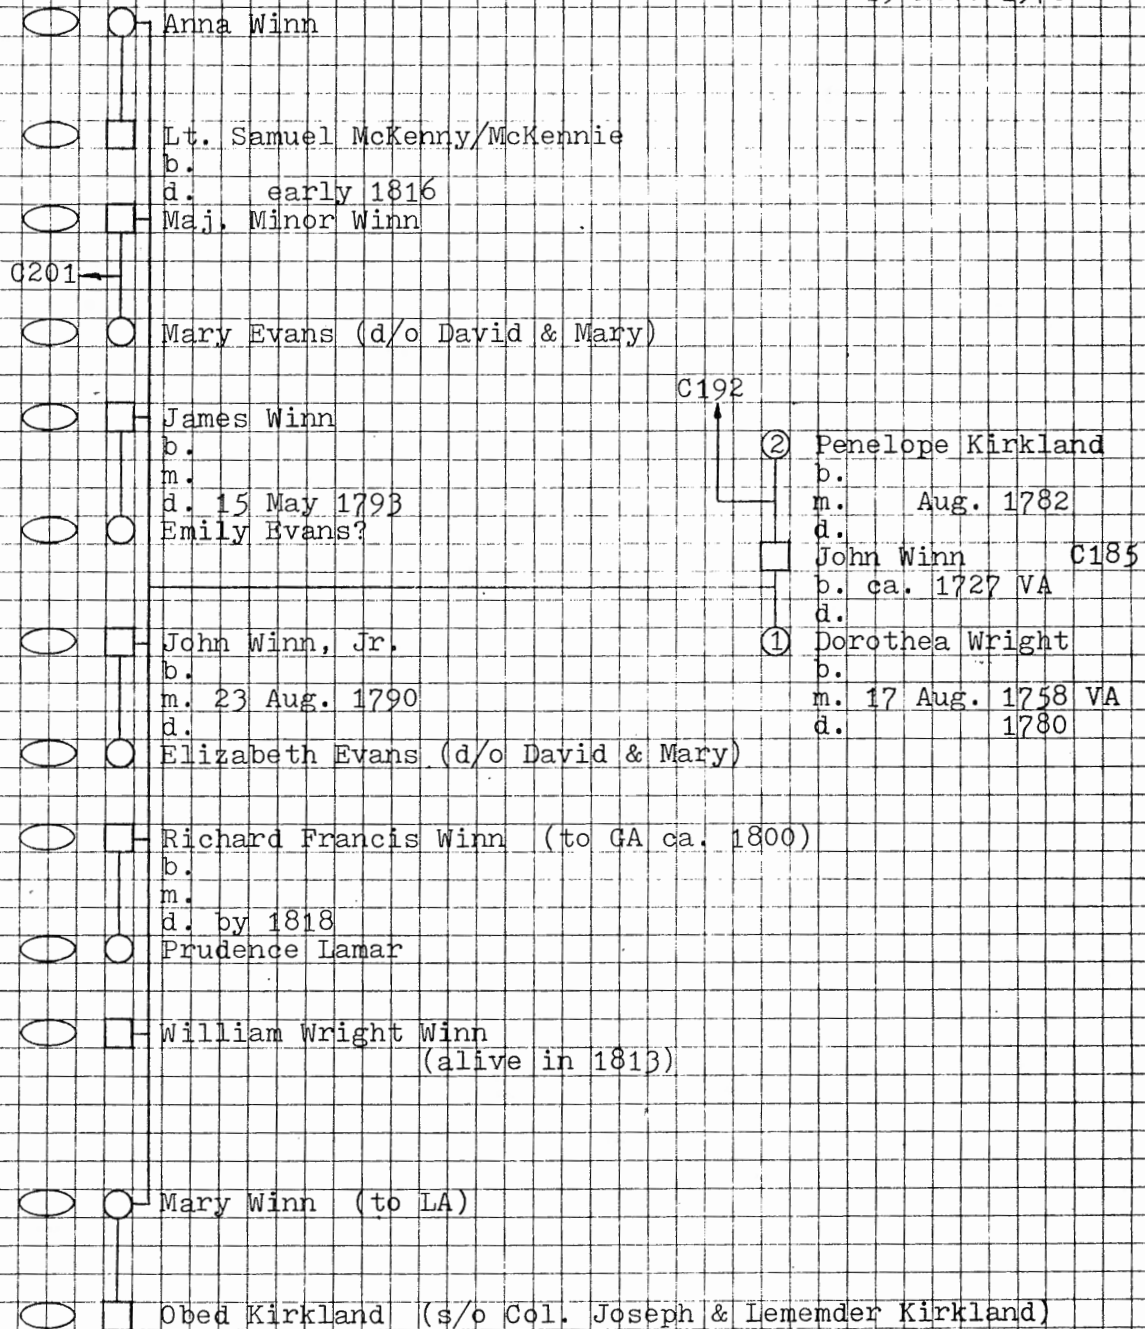 Anna Winn
Lt. Samuel McKenny/McKennie
b.
d. early 1816
Maj. Minor Winn
C201
Mary Evans (d/o David & Mary)
James Winn
b.
m.
d. 15 May 1793
Emily Evans?
John Winn, Jr.
b.
m. 23 Aug. 1790
d.
Elizabeth Evans (d/o David & Mary)
Richard Francis Winn (to GA ca. 1800)
b.
m.
d. by 1818
Prudence Lamar
William Wright Winn
(alive in 1813)
Mary Winn (to LA)
Obed Kirkland (s/o Col. Joseph & Lememder Kirkland)
C192
2 Penelope Kirkland
b.
m. Aug. 1782
d.
John Winn C185
b. ca. 1727 VA
d.
1 Dorothea Wright
b.
m. 17 Aug. 1758 VA
d. 1780